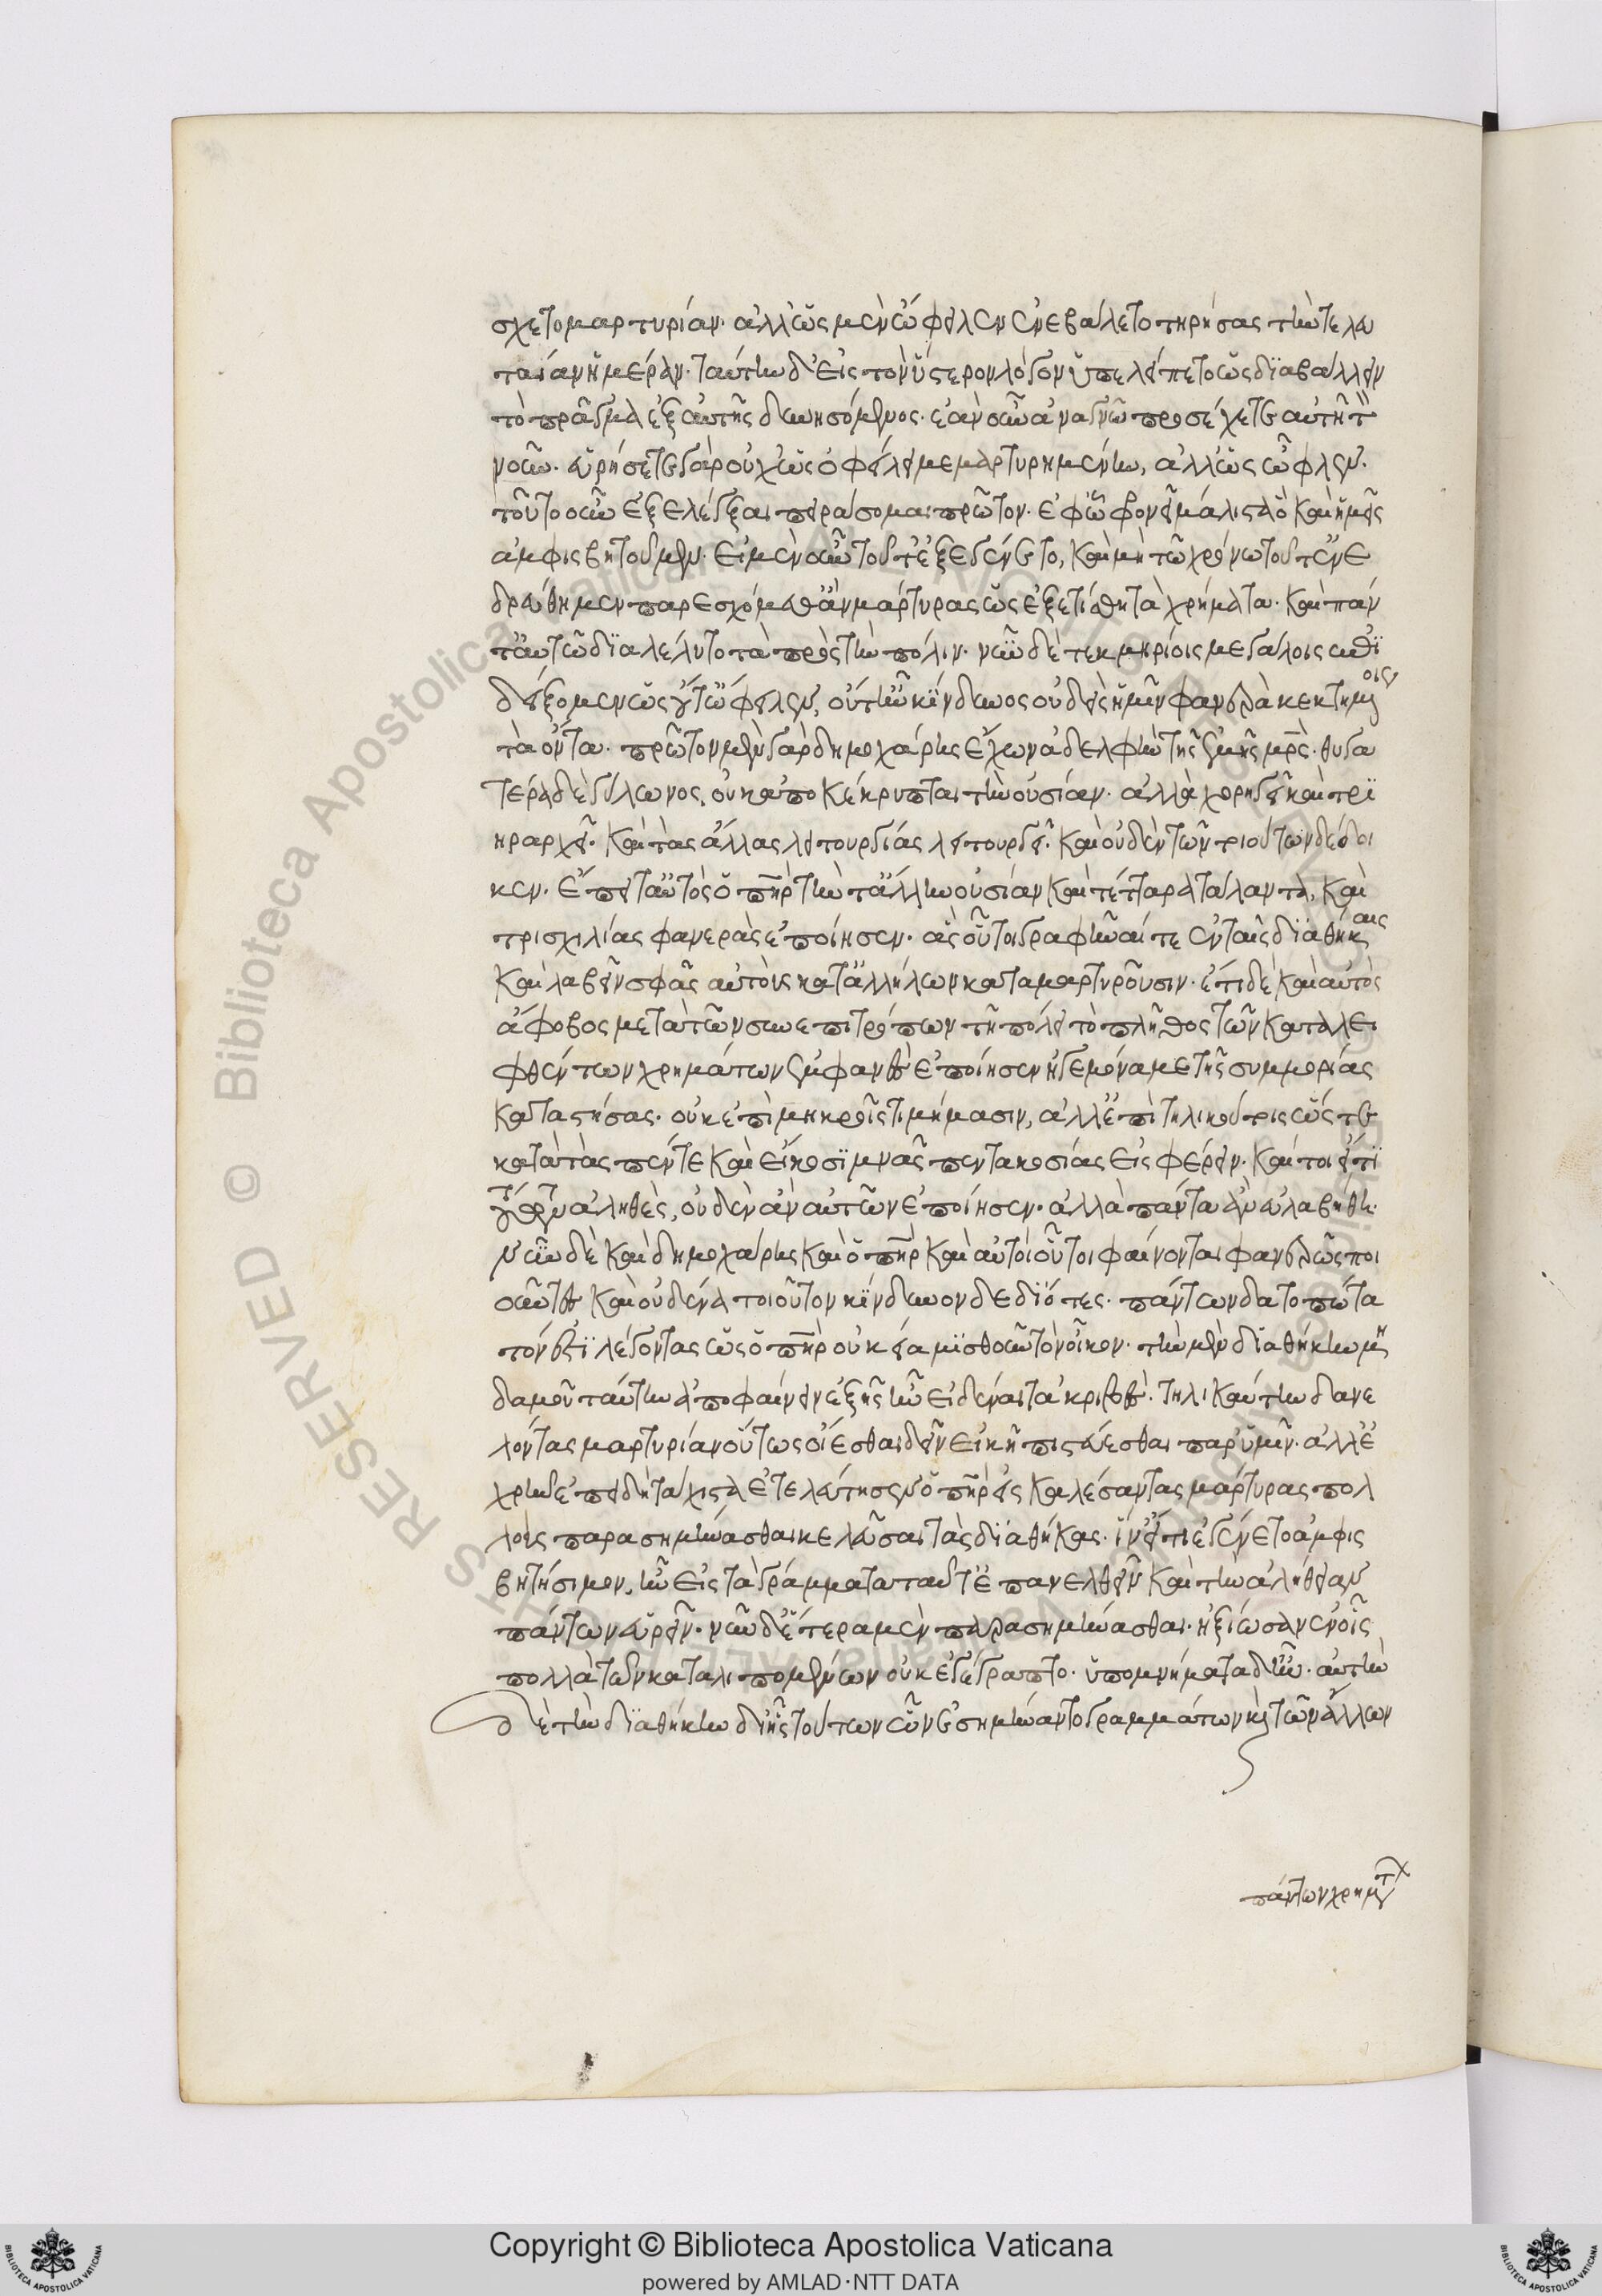 σχετο μαρτυρίαν· ἀλλ' ὡς μὲν ὤφειλεν ἐνεβάλετο τηρήσας τὴν τελευ
ταίαν ἡμέραν· ταύτην δ' εἰς τὸν ὕστερον λόγον ὑπελείπετο ὡς διαβάλλειν
τὸ πρᾶγμα ἐξ αὐτῆς δυνησόμενος· ἐὰν οὖν ἀναγνῶ προσέχετε αὐτῆ τὸν
νοῦν· εὑρήσετε γὰρ οὐχ ὡς ὀφείλει μεμαρτυρημένην, ἀλλ' ὡς ὦφλεν·
τοῦτο οὖν ἐξελέγξαι πειράσομαι πρῶτον· ἐφ' ᾧ φρονεῖ μάλιστα ὃ καὶ ἡμεῖς
ἀμφισβητοῦμεν· εἰ μὲν οὖν τότ' ἐξεγένετο, καὶ μὴ τῶ χρόνω τοῦτ' ἐνε
δρεύθημεν παρεσχόμεθ' ἂν μάρτυρας ὡς ἐξετίσθη τὰ χρήματα· καὶ πάν
τ' αὐτῶ διαλέλυτο τὰ πρὸς τὴν πόλιν· νῦν δὲ τεκμηρίοις μεγάλοις ἐπι
δείξομεν ὡς οὔτ' ὤφειλεν, οὔτ' ἦν κίνδυνος οὐδεὶς ἡμῖν φανερὰ κεκτημένοις
τὰ ὄντα· πρῶτον μὲν γὰρ δημοχάρης ἔχων ἀδελφὴν τῆς ἐμῆς μρς· θυγα
τέρα δὲ γύλωνος, οὐκ ἀποκέκρυπται τὴν οὐσίαν· ἀλλὰ χορηγεῖ καὶ τρι
ηραρχεῖ· καὶ τὰς ἄλλας λειτουργίας λειτουργεῖ· καὶ οὐδὲν τῶν τοιούτων δέδοι
κεν· ἔπειτ' αὐτὸς ὁ πηρ τὴν τ' ἄλλην οὐσίαν καὶ τέτταρα τάλαντα, καὶ
τρισχιλίας φανερὰς ἐποίησεν· ἃς οὗτοι γραφῆναί τε ἐν ταῖς διαθήκαις
καὶ λαβεῖν σφᾶς αὐτοὺς κατ' ἀλλήλων καταμαρτυροῦσιν· ἔτι δὲ καὶ αὐτὸς
ἄφοβος μετὰ τῶν συνεπιτρόπων τῆ πόλει τὸ πλῆθος τῶν καταλει
φθέντων χρημάτων ἐμφανὲς ἐποίησεν ἡγεμόνα με τῆς συμμορίας
καταστήσας· οὐκ ἐπὶ μικροῖς τιμήμασιν, ἀλλ' ἐπὶ τηλικούτοις ὥστε
κατὰ τὰς πέντε καὶ εἴκοσι μνᾶς πεντακοσίας εἰσφέρειν· καίτοι εἴ τι
τούτων ἦν ἀληθὲς, οὐδὲν ἂν αὐτῶν ἐποίησεν· ἀλλὰ πάντα ἂν εὐλαβήθη·
νῦν δὲ καὶ δημοχάρης καὶ ὁ πηρ καὶ αὐτοὶ οὗτοι φαίνονται φανερῶς ποι
οῦντες καὶ οὐδένα τοιοῦτον κίνδυνον δεδιότες· πάντων δ' ἀτοπώτα
τόν ἐστι λέγοντας ὡς ὁ πηρ οὐκ εἴα μισθοῦν τὸν οἶκον· τὴν μὲν διαθήκην μη
δαμοῦ ταύτην ἀποφαίνειν ἐξ ἧς ἦν εἰδέναι τἀκριβές· τηλικαύτην δ' ἀνε
λόντας μαρτυρίαν οὕτως οἴεσθαι δεῖν εἰκῆ πιστεύεσθαι παρ' ὑμῖν· ἀλλ' ἐ
χρῆν ἐπειδὴ τάχιστα ἐτελεύτησεν ὁ πηρ εἰσκαλέσαντας μάρτυρας πολ
λοὺς παρασημήνασθαι κελεῦσαι τὰς διαθήκας· ἵν' εἴ τι ἐγένετο ἀμφισ
βητήσιμον, ἦν εἰς τὰ γράμματα ταῦτ' ἐπανελθεῖν καὶ τὴν ἀλήθειαν
πάντων εὑρεῖν· νῦν δ' ἕτερα μὲν παρασημήνασθαι· ἠξίωσαν ἐν οἷς
πολλὰ τῶν καταλιπομένων οὐκ ἐγέγραπτο· ὑπομνήματα δ' ἦν· αὐτὴν
δὲ τὴν διαθήκην δι' ἧς τούτων ὧν ἐσημήναντο γραμμάτων καὶ τῶν ἄλλων
πάντων χρημάτ